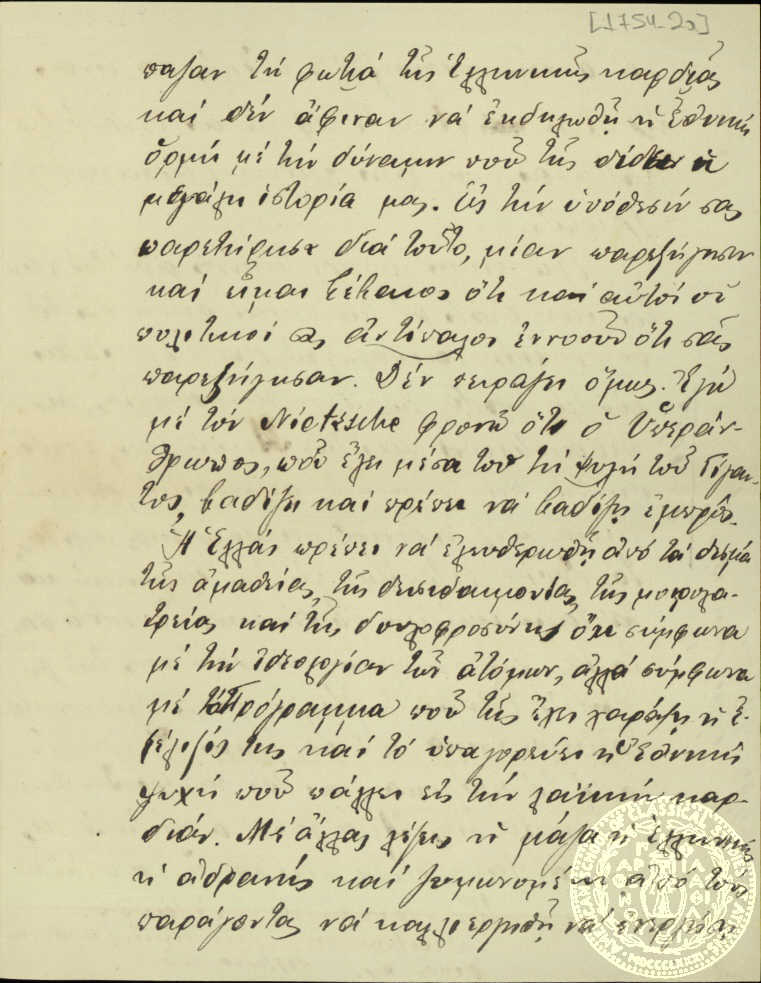 [1754-2α]
πασαν τή φωτιά τῆς ἑλληνικῆς καρδιᾶς
καί δέν ἄφιναν νά ἐκδηλωθῇ ἡ ἐθνική
ὁρμή μέ τήν δύναμιν ποῦ τῆς δίδει ἡ
μεγάλη ἱστορία μας. Εἰς τήν ὑπόθεσίν σας
παρετήρησα διά τοῦτο, μίαν παρεξήγησιν
καί εἶμαι βέβαιος ὅτι καί αὐτοί οἱ
πολιτικοί σας ἀντίπαλοι ἐννοοῦν ὅτι σᾶς
παρεξήγησαν. Δέν πειράζει ὅμως. Ἐγώ
μέ τόν Nietzsche φρονῶ ὅτι ὁ Ὑπεράν-
θρωπος, ποῦ ἔχει μέσα του τή ψυχή τοῦ Γίγαν-
τος, βαδίζει καί πρέπει νά βαδίζῃ ἐμπρός.
Ἡ Ἑλλάς πρέπει νά ἐλευθερωθῇ ἀπό τά δεσμά
τῆς ἀμαθείας, τῆς δεισιδαιμονίας, τῆς
καί τῆς δουλοφροσύνης ὄχι σύμφωνα
μέ τήν ἰδεολογίαν τῶν ἀτόμων, ἀλλά σύμφωνα
μέ τό Πρόγραμμα ποῦ τῆς ἔχει χαράξει ἡ ἐ-
ξέλιξίς της καί τό ὑπαγορεύει ἡ ἐθνική
ψυχή ποῦ πάλλει εἰς τήν λαϊκήν καρ-
διάν. Μέ ἄλλας λέξεις ἡ μάζα ἡ ἑλληνική
ἡ ἀδρανής καί ἀπό τούς
παράγοντας νά καλλιεργηθῇ νά
AMERICAN SCHOOL OF CLASSICAL STUDIES AT ATHENS
MDCCCLXXXI